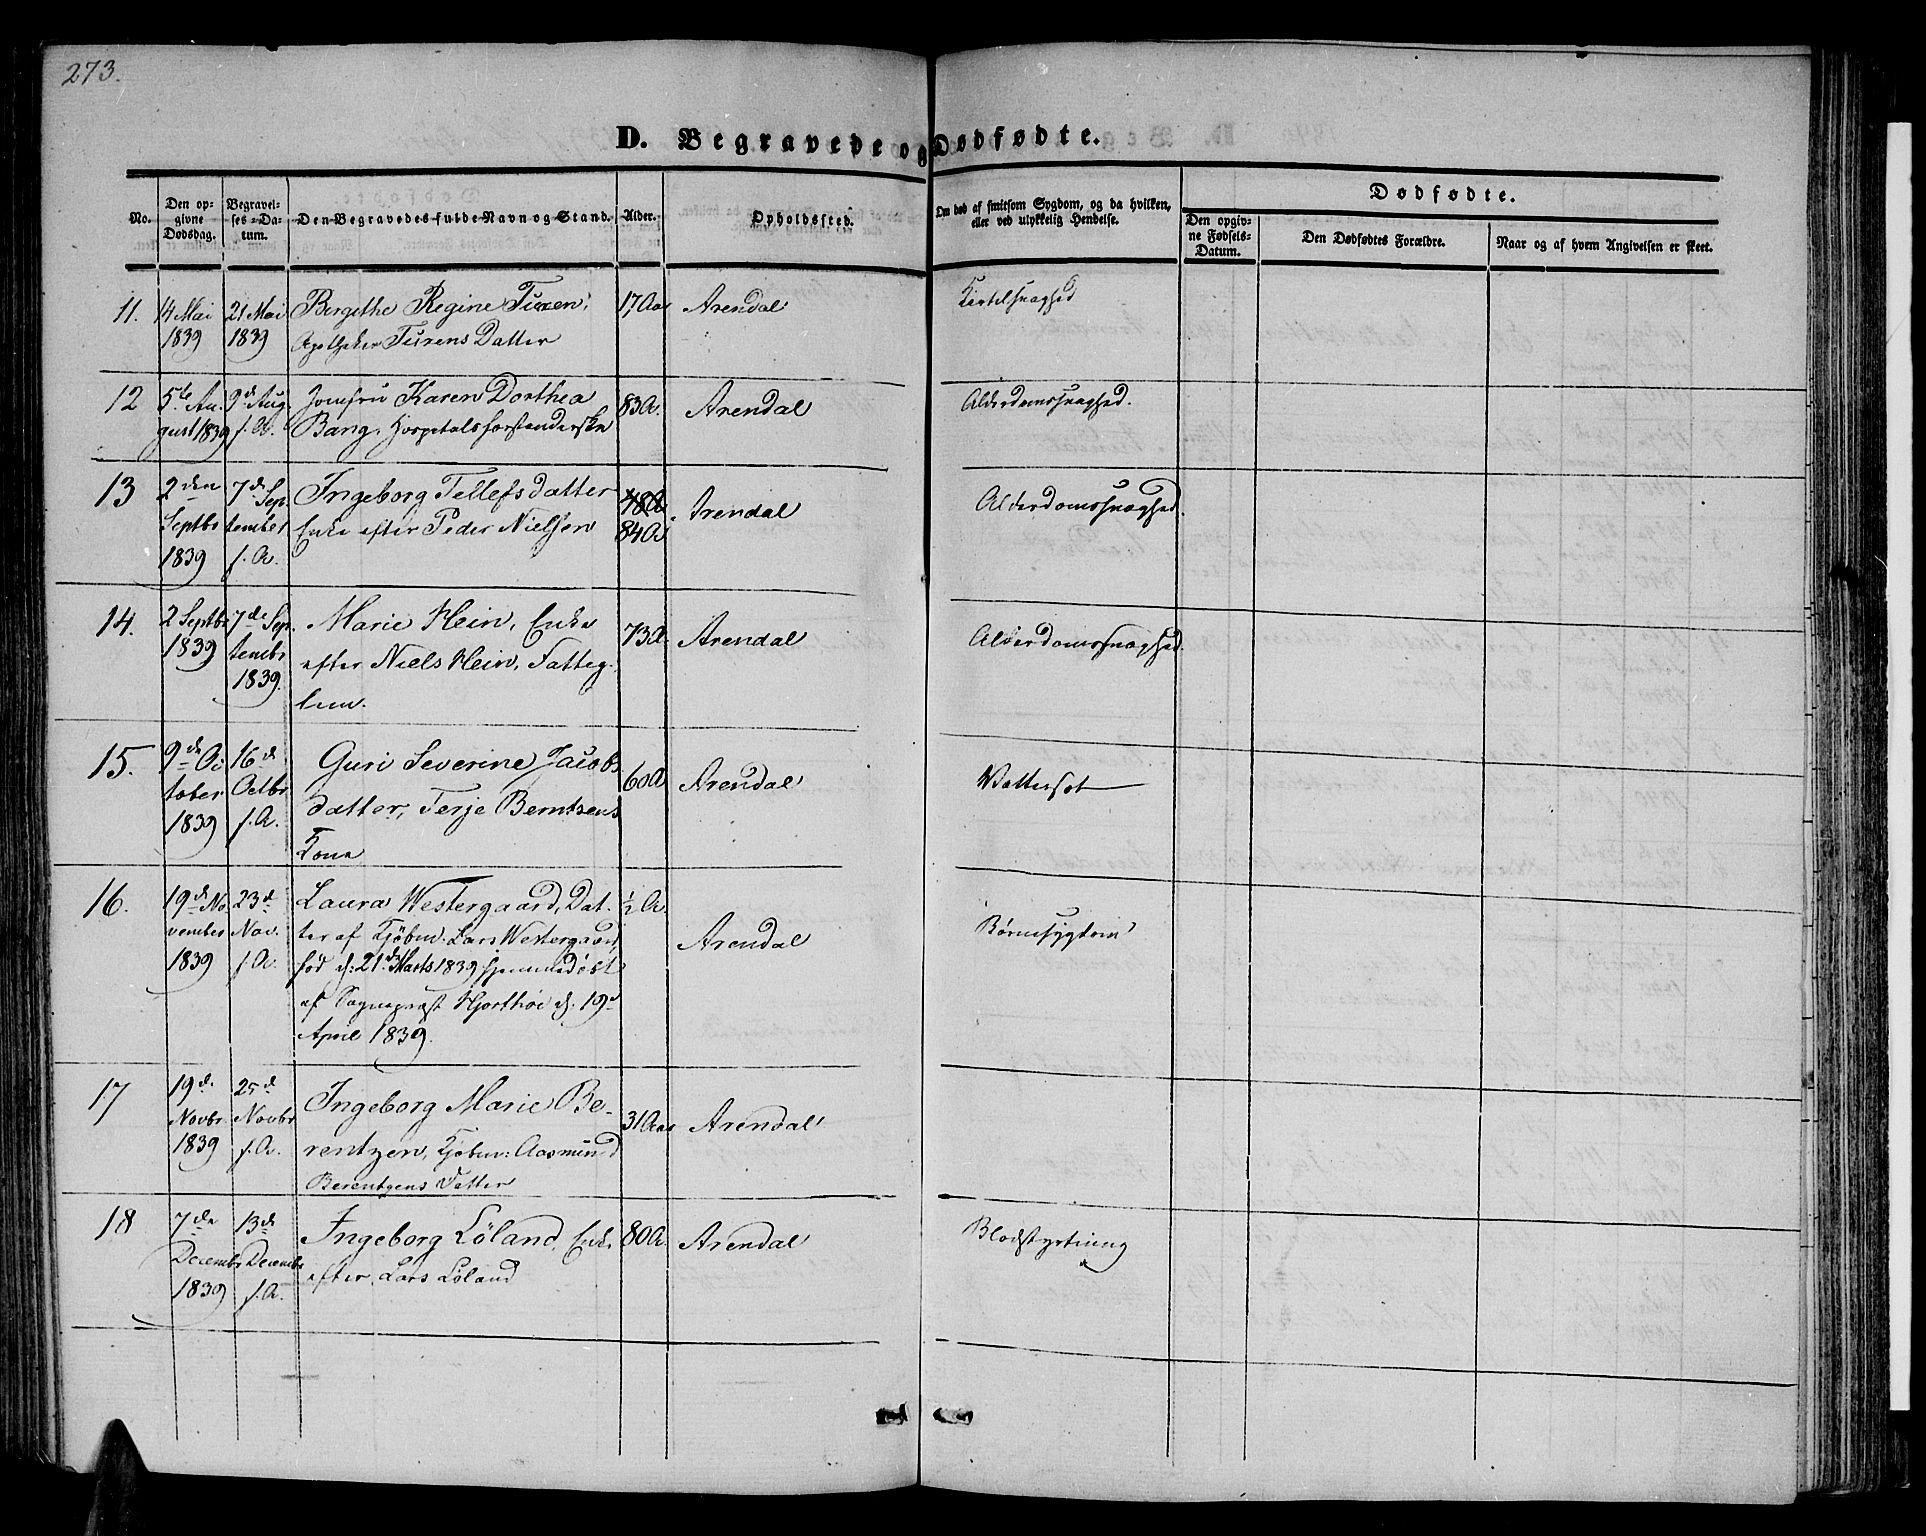 273.
D. Begravede og Dødfødte.
No.
Den op-
givne
Dødsdag.
Begravel-
ses-Da-
tum.
Den Begravedes fulde Navn og Stand.
Alder.
Opholdssted.
Om død af smitsom Sygdom, og da hvilken,
eller ved ulykkelig Hendelse.
Dødfødte.
Den opgiv-
ne Fødsels-
Datum.
Den Dødfødtes Forældre.
Naar og af hvem Angivelsen er skeet.
11.
14 Mai
1839
21 Mai
1839
Bergithe Regine Tuxen,
Apotheker Tuxens Datter
17 Aar
Arendal
Kirtelsvaghed
12
5te Au
gust 1839
9d Aug.
s. A.
Jomfru Karen Dorthea
Bang, Hospitalsforstanderske
83 A.
Arendal
Alderdomssvaghed.
13
2den
Septbr
1839
7d Sep
tember
s. A.
Ingeborg Tellefsdatter
Enke efter Peder Nielsen
48 A
84 A.
Arendal
Alderdomssvaghed.
14.
2 Septbr
1839
7de Sep.
tembr
1839.
Marie Hein, Enke
efter Niels Hein, Fatteg.
lem.
73 A
Arendal
Alderdomssvaghed.
15.
9de Oc
tober
1839
16d
Octbr
s. A.
Guri Severine Jacobs
datter, Terje Berntsens
Kone
60 A
Arendal
Vattersot
16.
19d No.
vember
1839
23d
Nov.
s. A.
Laura Westergaard, Dat-
ter af Kjøbm. Lars Westergaard,
fød d: 21d Marts 1839 hjemmedøbt
af Sognepræst Hjorthøi d. 19d
April 1839.
1/2 A.
Arendal
Børnesygdom
17
19de
Novbr.
1839
25d
Novbr
s. A.
Ingeborg Marie Be-
rentzen, Kjøbm: Aasmund
Berentzens Datter
31 Aar
Arendal
18
7de
Decembr
1839
13de
Decembr
s. A.
Ingeborg Löland, Enke
efter Lars Löland
80 A.
Arendal
Blodstyrtning